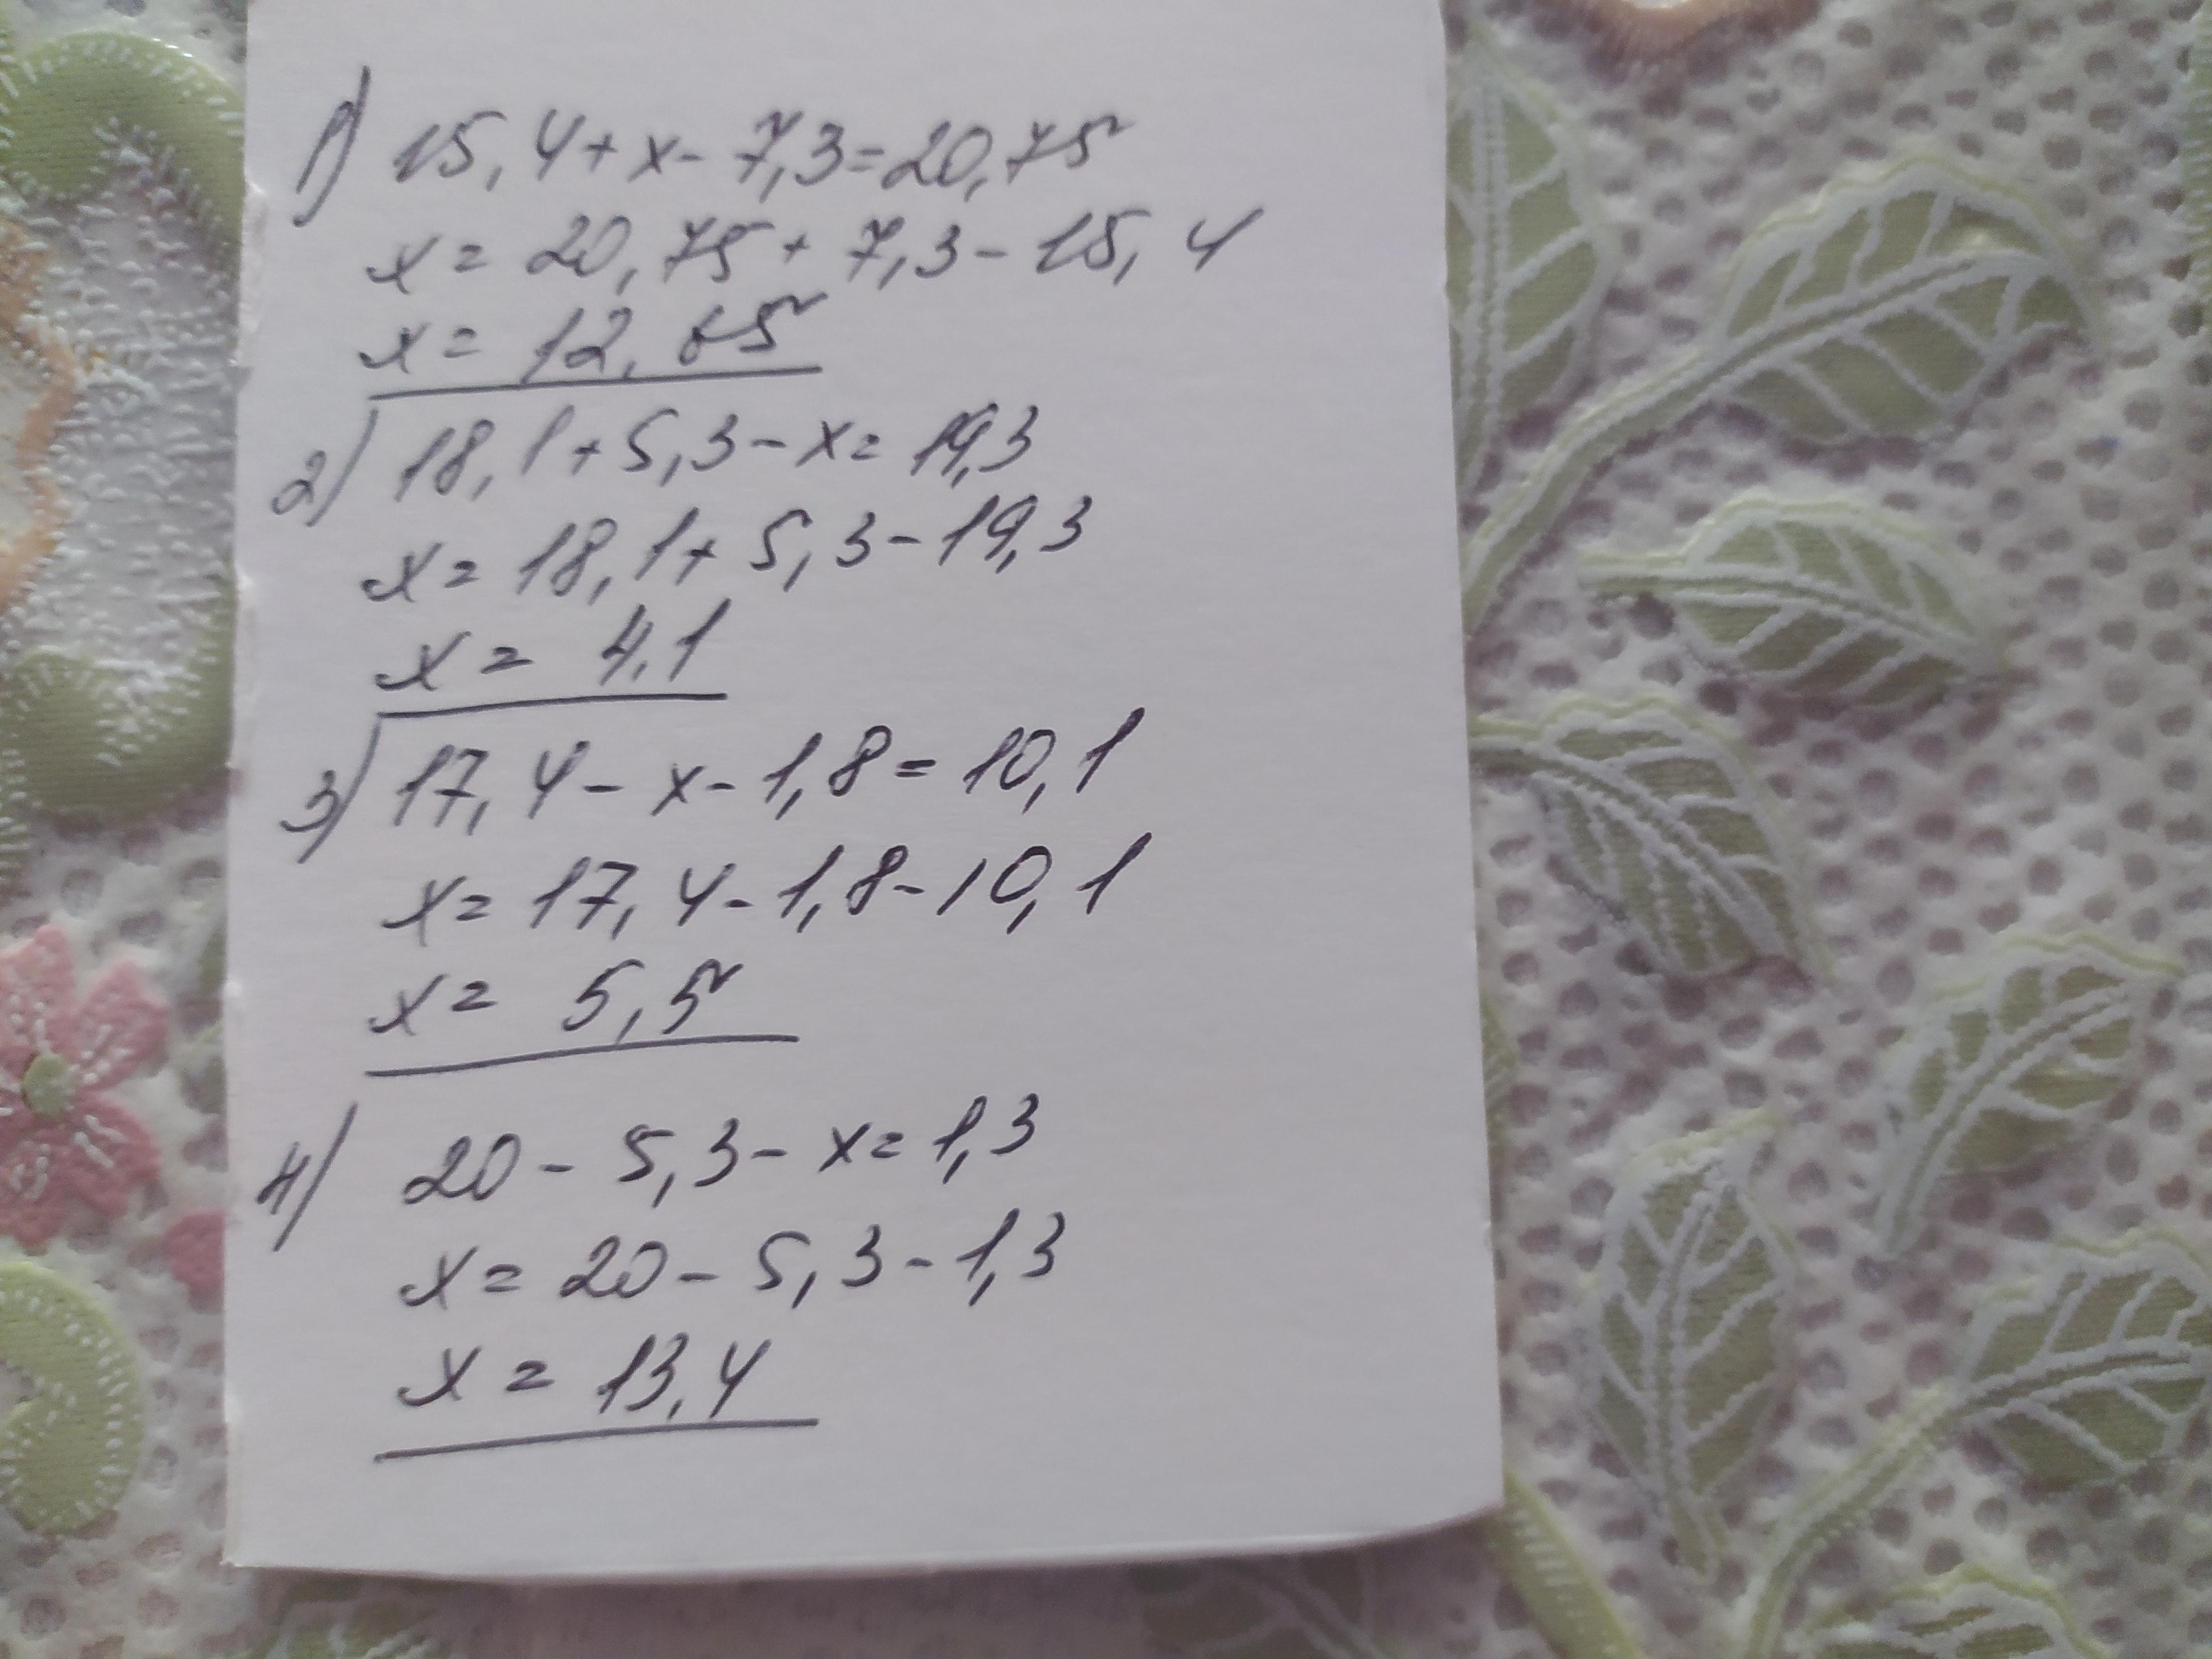 1) 15,4+x-7,3=20,75
x=20,75+7,3-15,4
x=12,65
2) 18,1+5,3-x=19,3
x=18,1+5,3-19,3
x=4,1
3) 17,4-x-1,8=10,1
x=17,4-1,8-10,1
x=5,5
4) 20-5,3-x=1,3
x=20-5,3-1,3
x=13,4